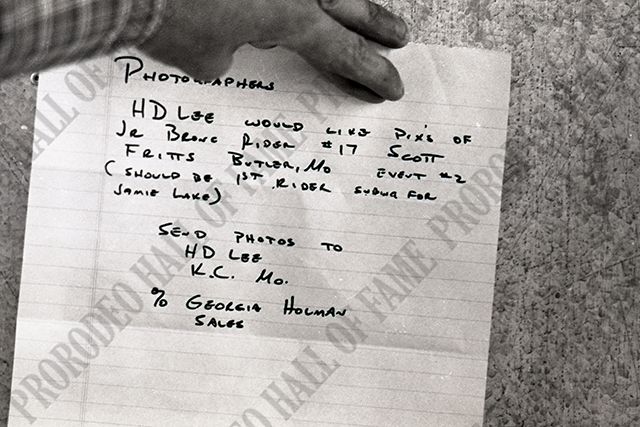 Photographers
HD Lee would like pix's of
Jr Bronc Rider #17 Scott
Fritts Butler, Mo Event #2
(should be 1st rider subng for
Jamie Lake)
Send photos to
HD Lee
K.C. Mo.
% Georgia Holman
Sales
PRORODEO HALL OF FAME